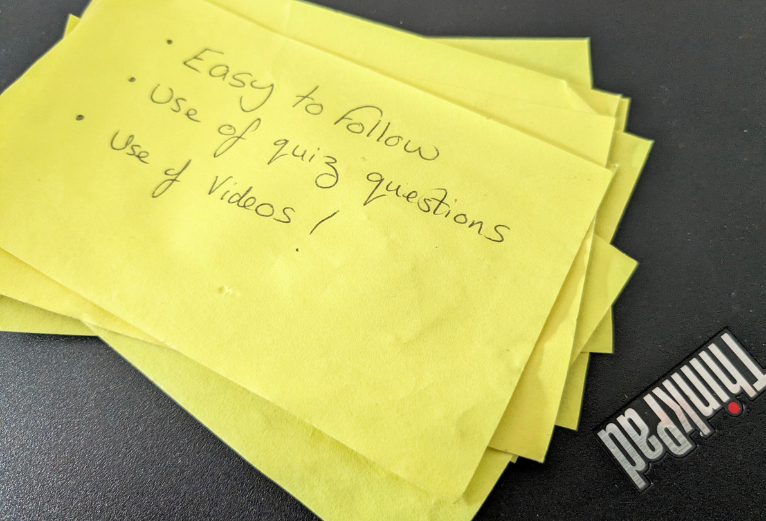 • Easy to follow
• Use of quiz questions
• Use of Videos!
ThinkPad